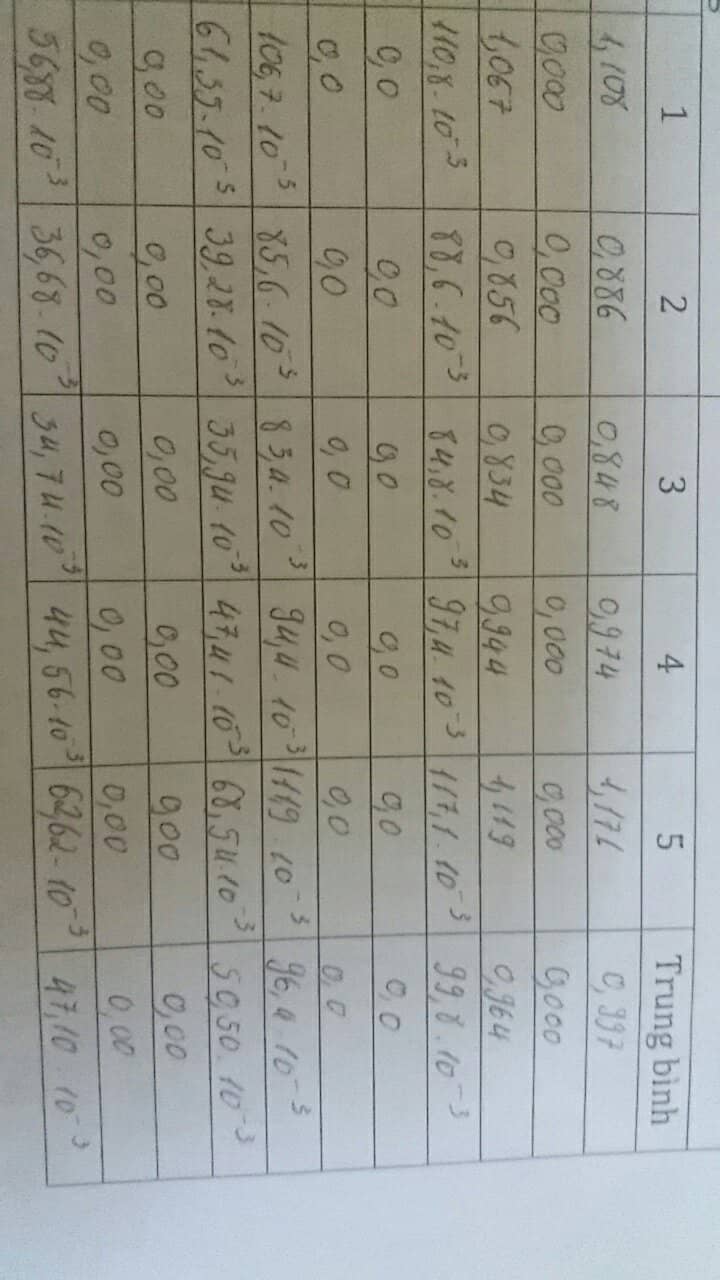 1 2 3 4 5 Trung bình
1,108 0,886 0,848 0,974 1,171 0,997
0,000 0,000 0,000 0,000 0,000 0,000
1,067 0,856 0,834 0,944 1,119 0,964
110,8.10⁻³ 88,6.10⁻³ 84,8.10⁻³ 97,4.10⁻³ 117,1.10⁻³ 99,8.10⁻³
0,0 0,0 0,0 0,0 0,0 0,0
0,0 0,0 0,0 0,0 0,0 0,0
106,7.10⁻³ 85,6.10⁻³ 83,4.10⁻³ 94,4.10⁻³ 111,9.10⁻³ 96,4.10⁻³
61,35.10⁻³ 39,28.10⁻³ 35,94.10⁻³ 47,41.10⁻³ 68,54.10⁻³ 50,50.10⁻³
0,00 0,00 0,00 0,00 0,00 0,00
0,00 0,00 0,00 0,00 0,00 0,00
56,88.10⁻³ 36,68.10⁻³ 34,74.10⁻³ 44,56.10⁻³ 62,62.10⁻³ 47,10.10⁻³